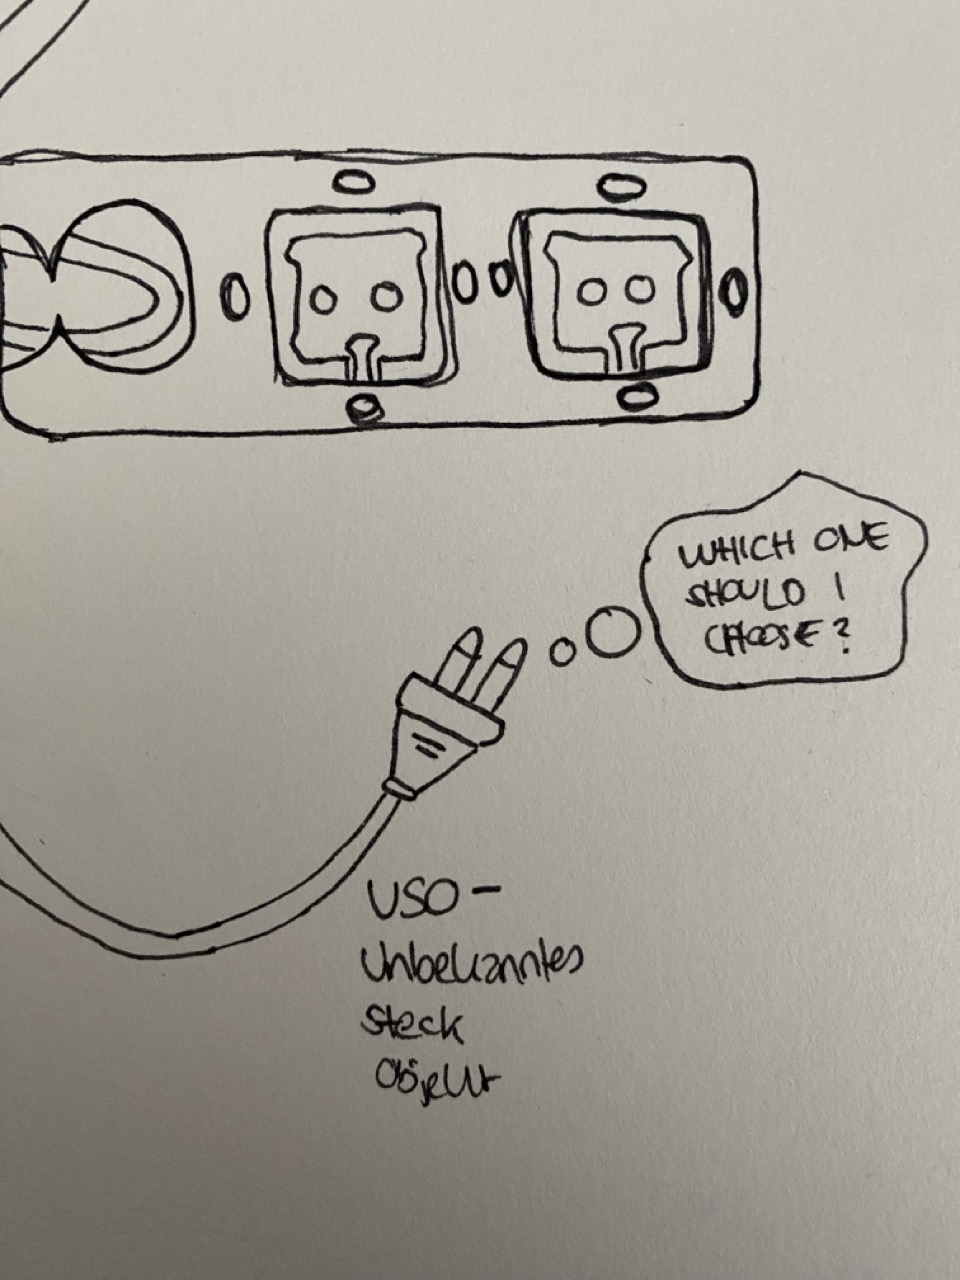 WHICH ONE
SHOULD I
CHOOSE?
USO -
Unbekanntes
Steck
Objekt